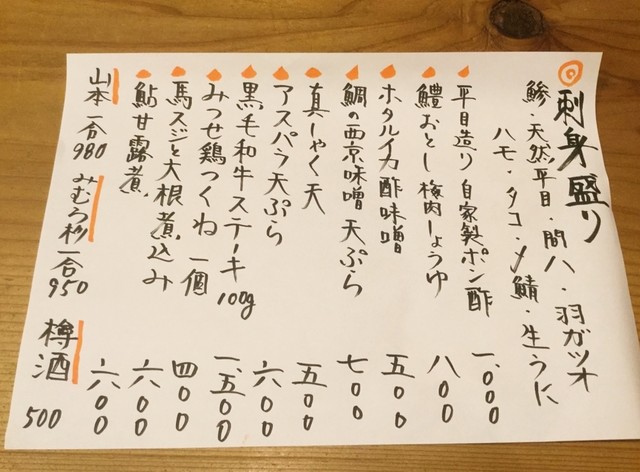 ◎刺身盛り
鯵・天然平目・間八・羽ガツオ
ハモ・タコ・〆鯖・生うに
平目造り 自家製ポン酢 一、000
鱧おとし 梅肉しょうゆ 八00
ホタルイカ酢味噌 五00
鯛の西京味噌天ぷら 七00
真しゃく天 五00
アスパラ天ぷら 六00
黒毛和牛ステーキ100g 一、五00
みつせ鶏つくね 一個 四00
馬スジと大根煮込み 六00
鮎甘露煮 六00
山本 一合980 みむろ杉 一合950 樽酒 500